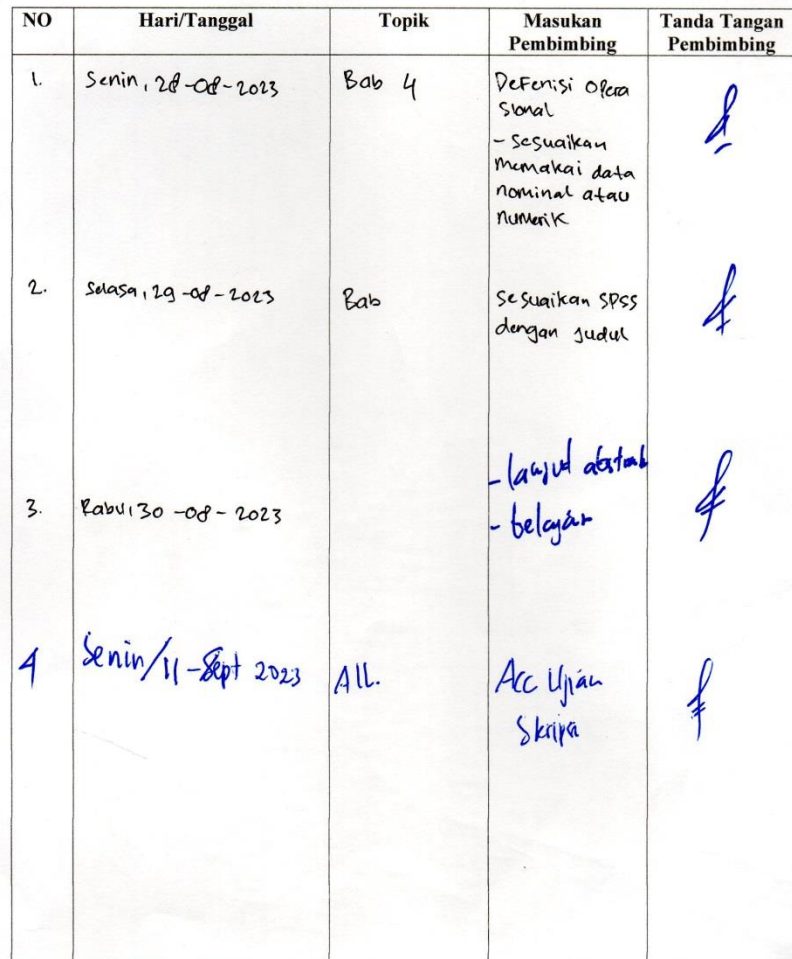 NO Hari/Tanggal Topik Masukan Pembimbing Tanda Tangan Pembimbing
1. Senin, 28-08-2023 Bab 4 Defenisi Opera
sional
- Sesuaikan
memakai data
nominal atau
numerik
2. Selasa, 29-08-2023 Bab Sesuaikan SPSS
dengan Judul
3. Rabu, 30-08-2023 - lanjut abstrak
- belajar
4 Senin/11-Sept 2023 All. Acc Ujian
Skripsi